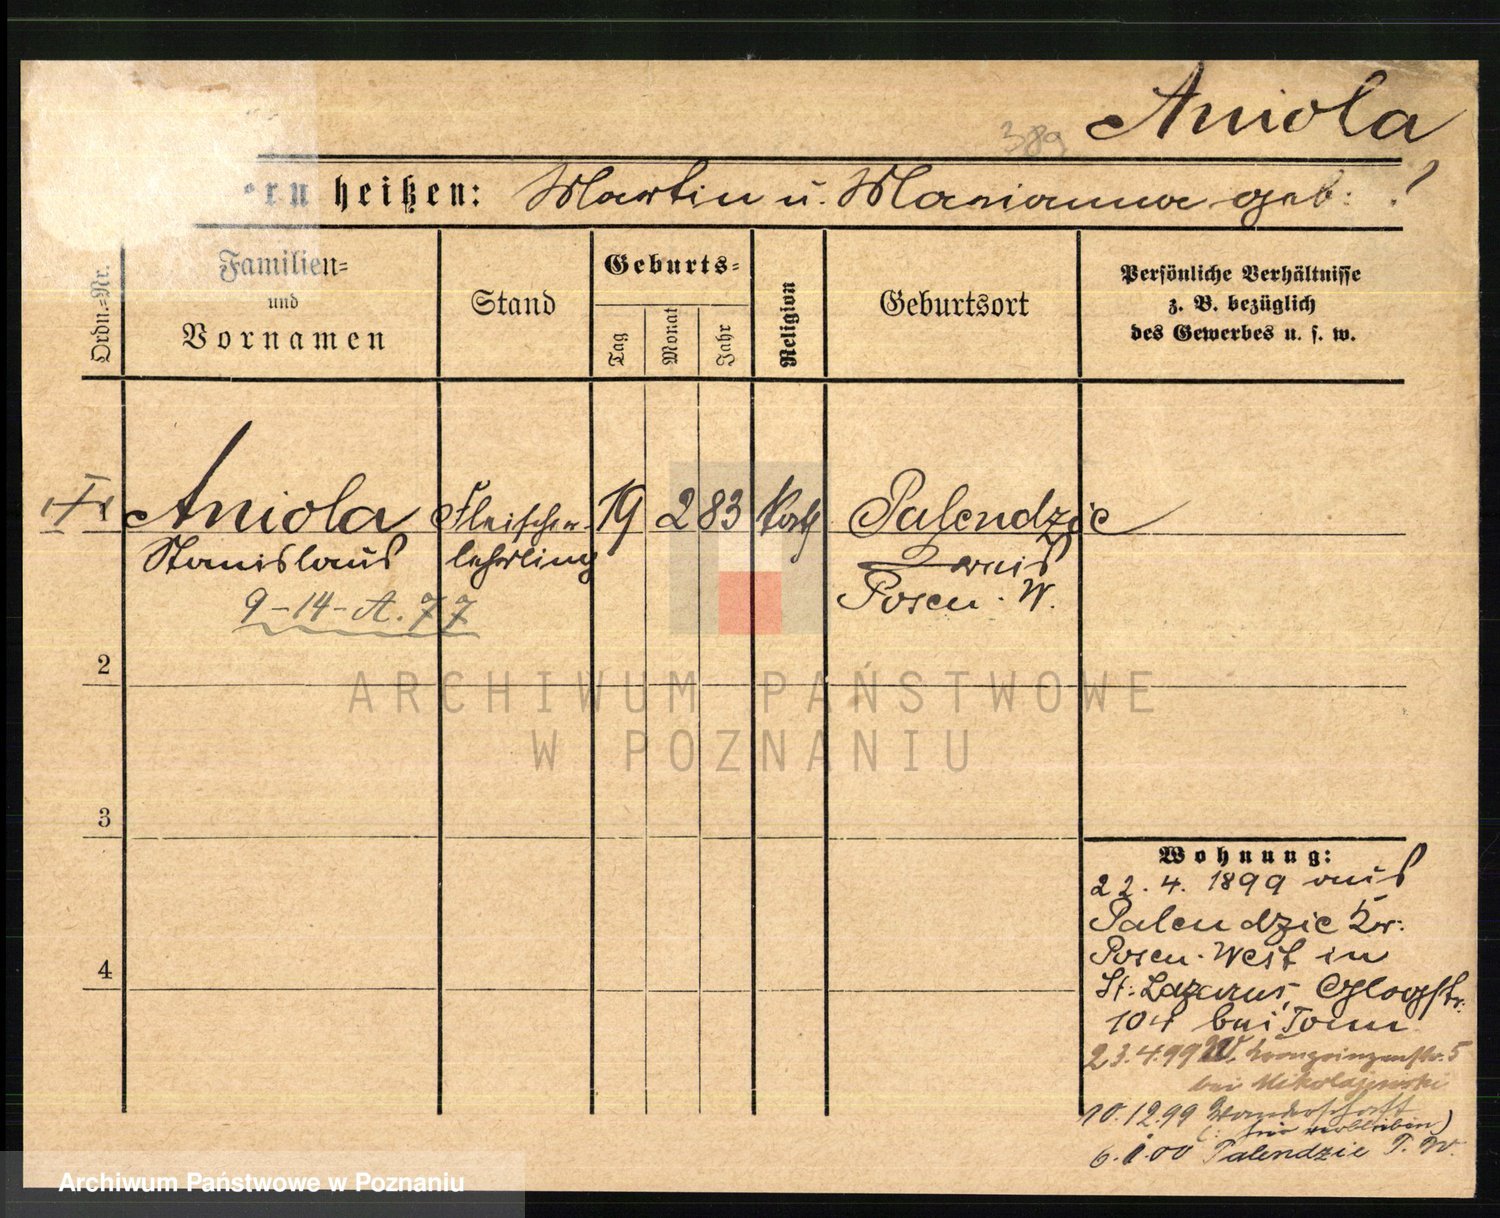 Aniola
389
ern heißen: Martin u. Marianna geb: ?
Ordn.-Nr.
Familien-
und
Vornamen
Stand
Geburts-
Tag
Monat
Jahr
Religion
Geburtsort
Persönliche Verhältnisse
z. B. bezüglich
des Gewerbes u. s. w.
1 Aniola Fleischer- 19 2 83 kath Palendzie
Stanislaus lehrling Kreis
Posen-W.
9-14-A.77
2
ARCHIWUM PAŃSTWOWE
W POZNANIU
3
4
Wohnung:
22.4.1899 aus
Palendzie Kr:
Posen-West in
St: Lazarus, Glogstr:
104 bei Tomm
23.4.99 W. Kronprinzenstr. 5
bei Mikolajewski
10.12.99 Wanderschaft
(: hier verblieben)
6.1.00 Palendzie P. W.
Archiwum Państwowe w Poznaniu